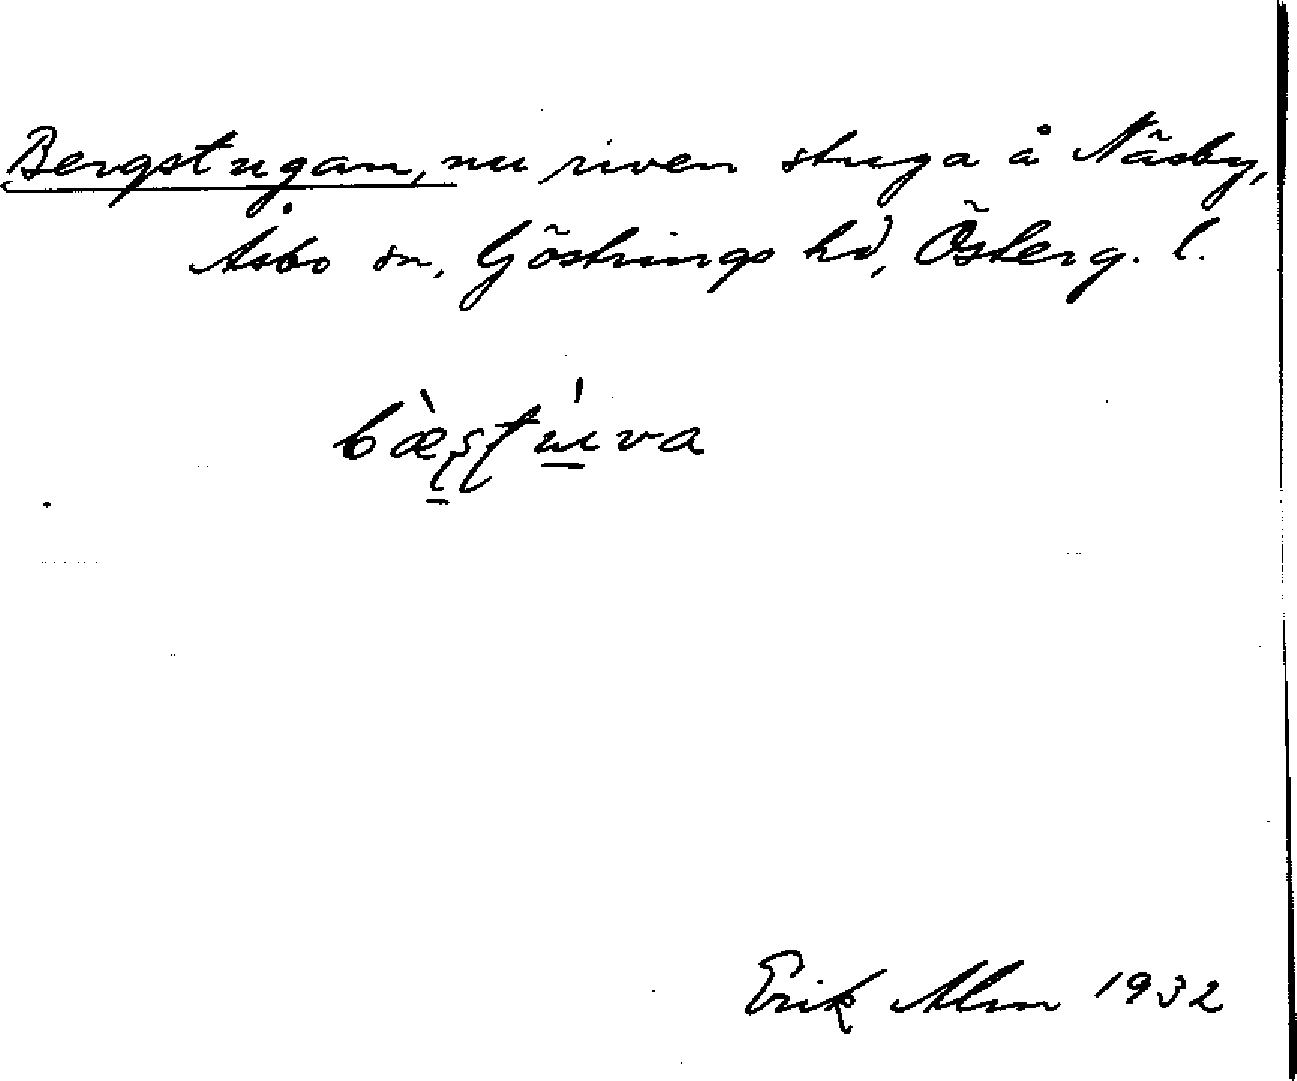 Bergstugan, nu riven stuga å Näsby,
Åsbo sn, Göstrings hd, Österg. l.
bæ̀ʂʈu̇va
Erik Alm 1932